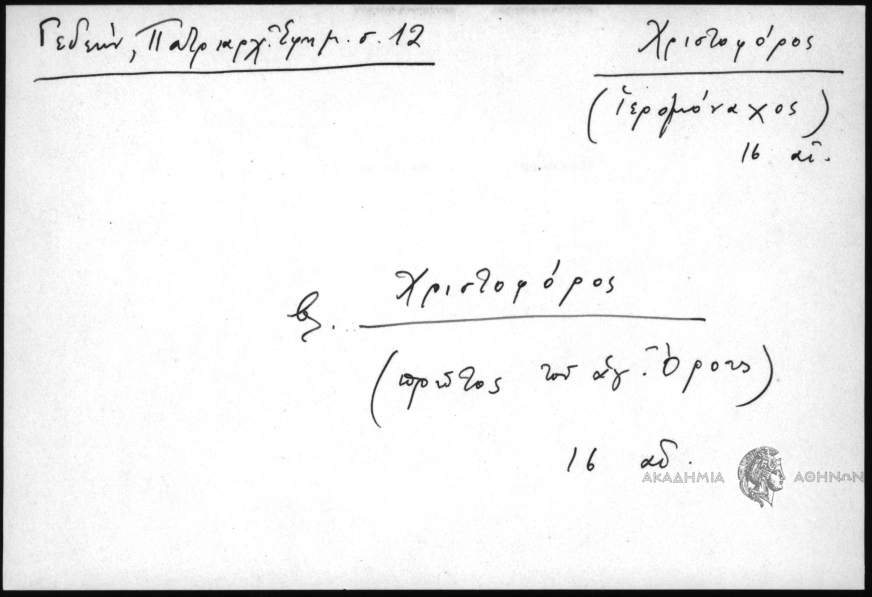 Γεδεών, Πατριαρχ. Ἐφημ. σ. 12
Χριστοφόρος
(ἱερομόναχος)
16 αἰ.
βλ. Χριστοφόρος
(πρῶτος τοῦ ἁγ. Ὄρους)
16 αἰ.
ΑΚΑΔΗΜΙΑ ΑΘΗΝΩΝ